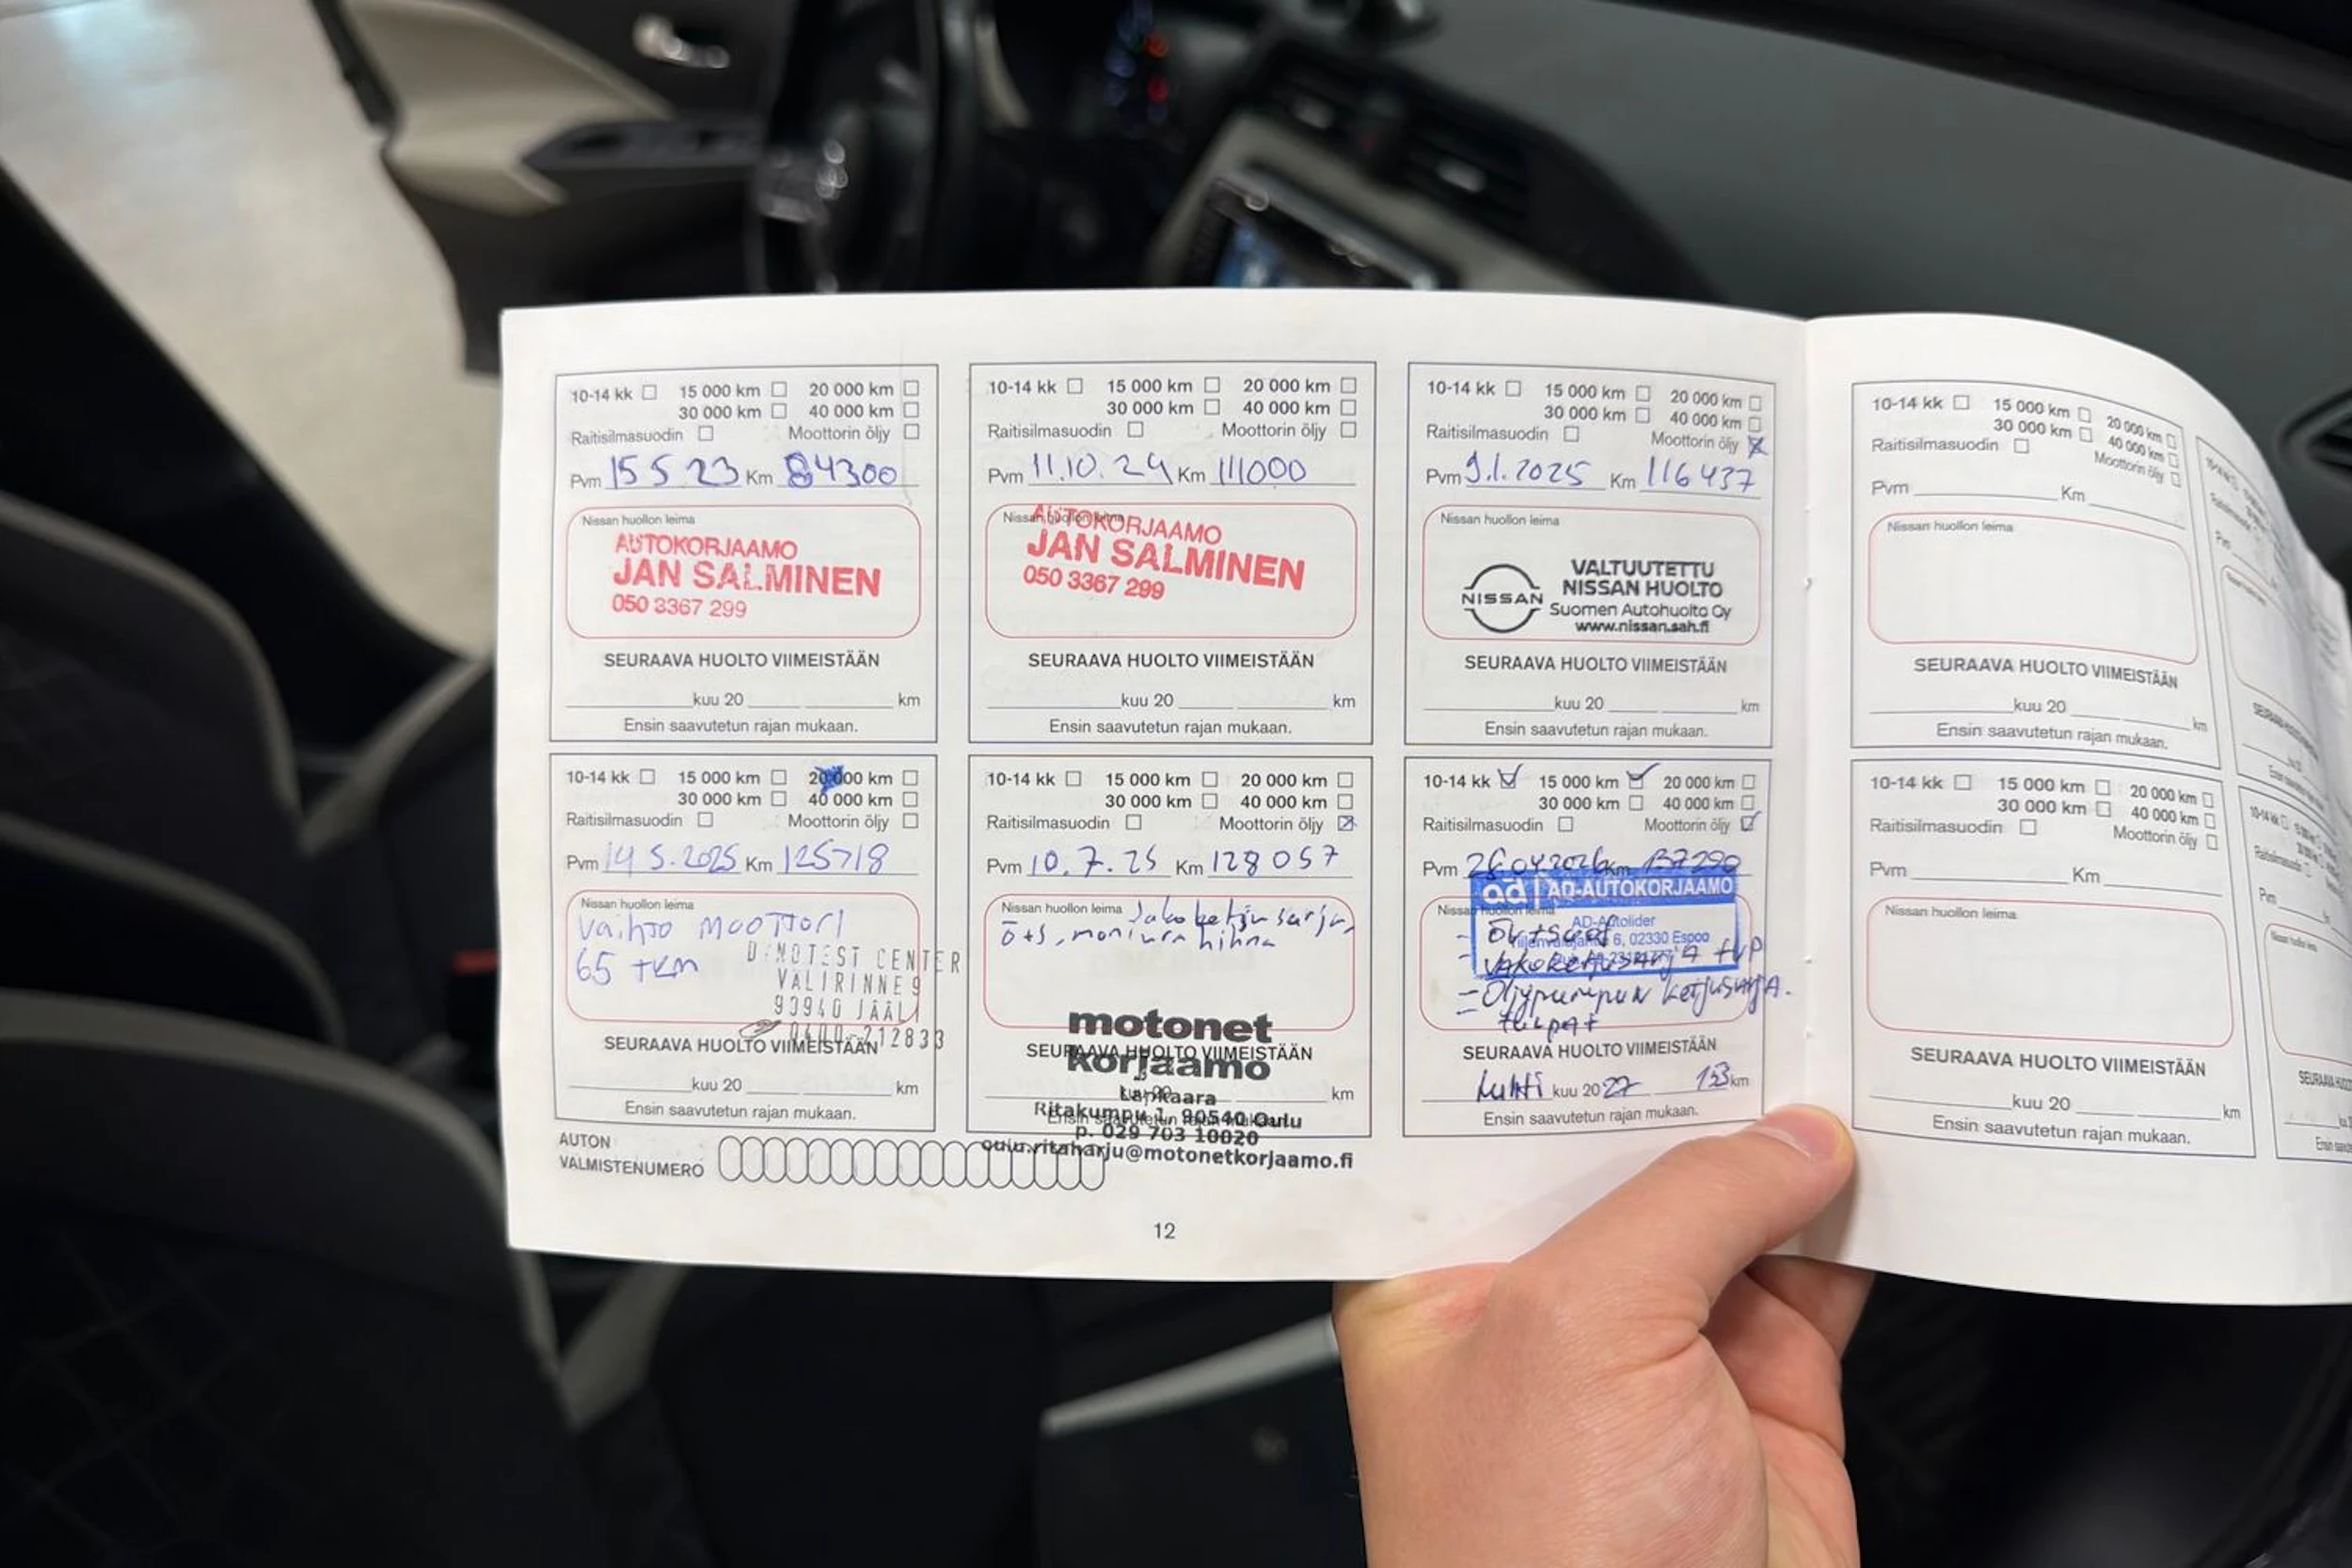 10-14 kk 15 000 km 20 000 km
30 000 km 40 000 km
Raitisilmasuodin Moottorin öljy
Pvm 15 5 23 Km 84300
Nissan huollon leima
AUTOKORJAAMO
JAN SALMINEN
050 3367 299
SEURAAVA HUOLTO VIIMEISTÄÄN
kuu 20 km
Ensin saavutetun rajan mukaan.
10-14 kk 15 000 km 20 000 km
30 000 km 40 000 km
Raitisilmasuodin Moottorin öljy
Pvm 11.10.24 Km 111000
Nissan huollon leima
AUTOKORJAAMO
JAN SALMINEN
050 3367 299
SEURAAVA HUOLTO VIIMEISTÄÄN
kuu 20 km
Ensin saavutetun rajan mukaan.
10-14 kk 15 000 km 20 000 km
30 000 km 40 000 km
Raitisilmasuodin Moottorin öljy
Pvm 9.1.2025 Km 116437
Nissan huollon leima
NISSAN
VALTUUTETTU
NISSAN HUOLTO
Suomen Autohuolto Oy
www.nissan.sah.fi
SEURAAVA HUOLTO VIIMEISTÄÄN
kuu 20 km
Ensin saavutetun rajan mukaan.
10-14 kk 15 000 km 20 000 km
30 000 km 40 000 km
Raitisilmasuodin Moottorin öljy
Pvm Km
Nissan huollon leima
SEURAAVA HUOLTO VIIMEISTÄÄN
kuu 20 km
Ensin saavutetun rajan mukaan.
10-14 kk 15 000 km 20 000 km
30 000 km 40 000 km
Raitisilmasuodin Moottorin öljy
Pvm 14 5.2025 Km 125718
Nissan huollon leima
vaihto moottori
65 tkm
DINOTEST CENTER
VÄLIRINNE 9
90940 JÄÄLI
0400-212833
SEURAAVA HUOLTO VIIMEISTÄÄN
kuu 20 km
Ensin saavutetun rajan mukaan.
10-14 kk 15 000 km 20 000 km
30 000 km 40 000 km
Raitisilmasuodin Moottorin öljy
Pvm 10.7.25 Km 128057
Nissan huollon leima Jakoketju sarja,
ö+s, moniura hihna
motonet
korjaamo
SEURAAVA HUOLTO VIIMEISTÄÄN
kuu 20 km
Ensin saavutetun rajan mukaan.
Ritakumpu 1, 90540 Oulu
p. 029 703 10020
oulu.ritaharju@motonetkorjaamo.fi
10-14 kk 15 000 km 20 000 km
30 000 km 40 000 km
Raitisilmasuodin Moottorin öljy
Pvm 26.04.2026 Km 137290
ad AD-AUTOKORJAAMO
Nissan huollon leima
AD-Autolider
6, 02330 Espoo
- Jakoketjusarja + vp
- Öljypumpun ketjusarja.
SEURAAVA HUOLTO VIIMEISTÄÄN
Huhti kuu 2027 153 km
Ensin saavutetun rajan mukaan.
10-14 kk 15 000 km 20 000 km
30 000 km 40 000 km
Raitisilmasuodin Moottorin öljy
Pvm Km
Nissan huollon leima
SEURAAVA HUOLTO VIIMEISTÄÄN
kuu 20 km
Ensin saavutetun rajan mukaan.
AUTON
VALMISTENUMERO
12